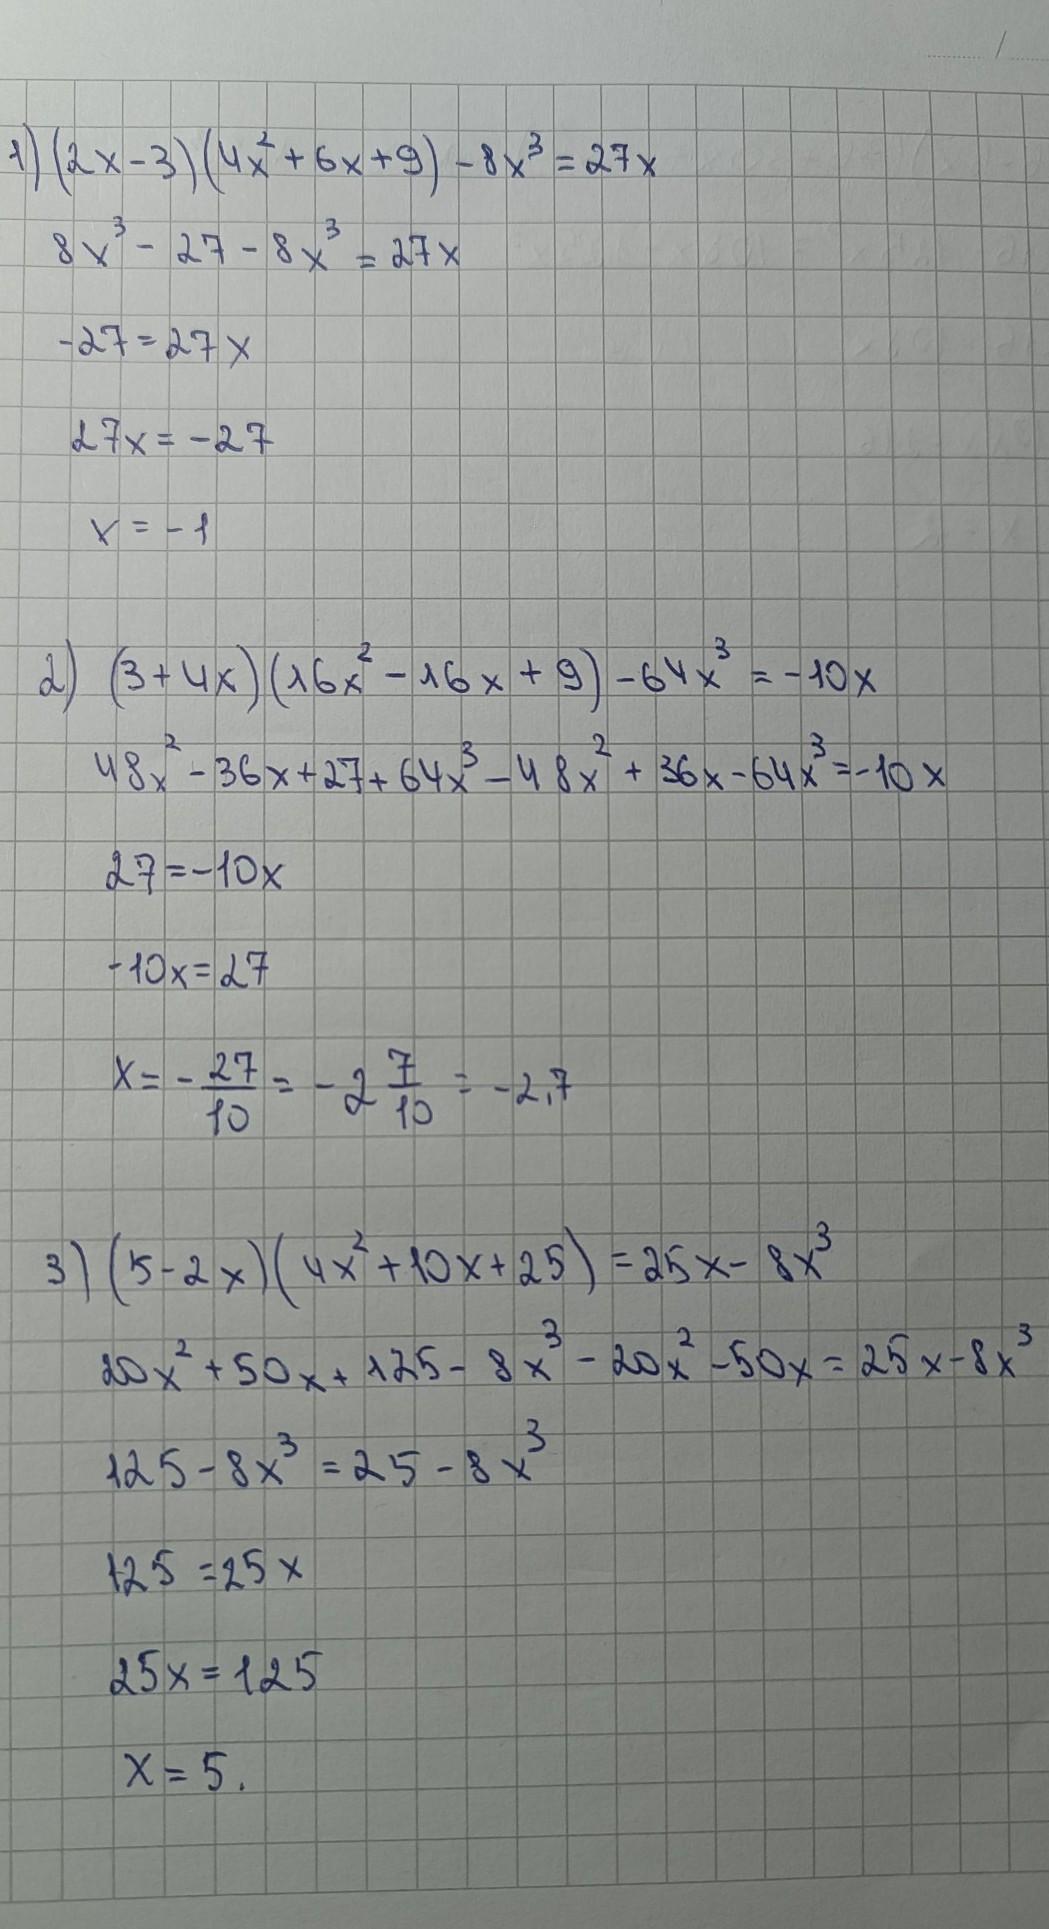 1) (2x-3)(4x²+6x+9)-8x³=27x
8x³-27-8x³=27x
-27=27x
27x=-27
x=-1
2) (3+4x)(16x²-16x+9)-64x³=-10x
48x²-36x+27+64x³-48x²+36x-64x³=-10x
27=-10x
-10x=27
x=-27/10=-2 7/10=-2,7
3) (5-2x)(4x²+10x+25)=25x-8x³
20x²+50x+125-8x³-20x²-50x=25x-8x³
125-8x³=25-8x³
125=25x
25x=125
x=5.